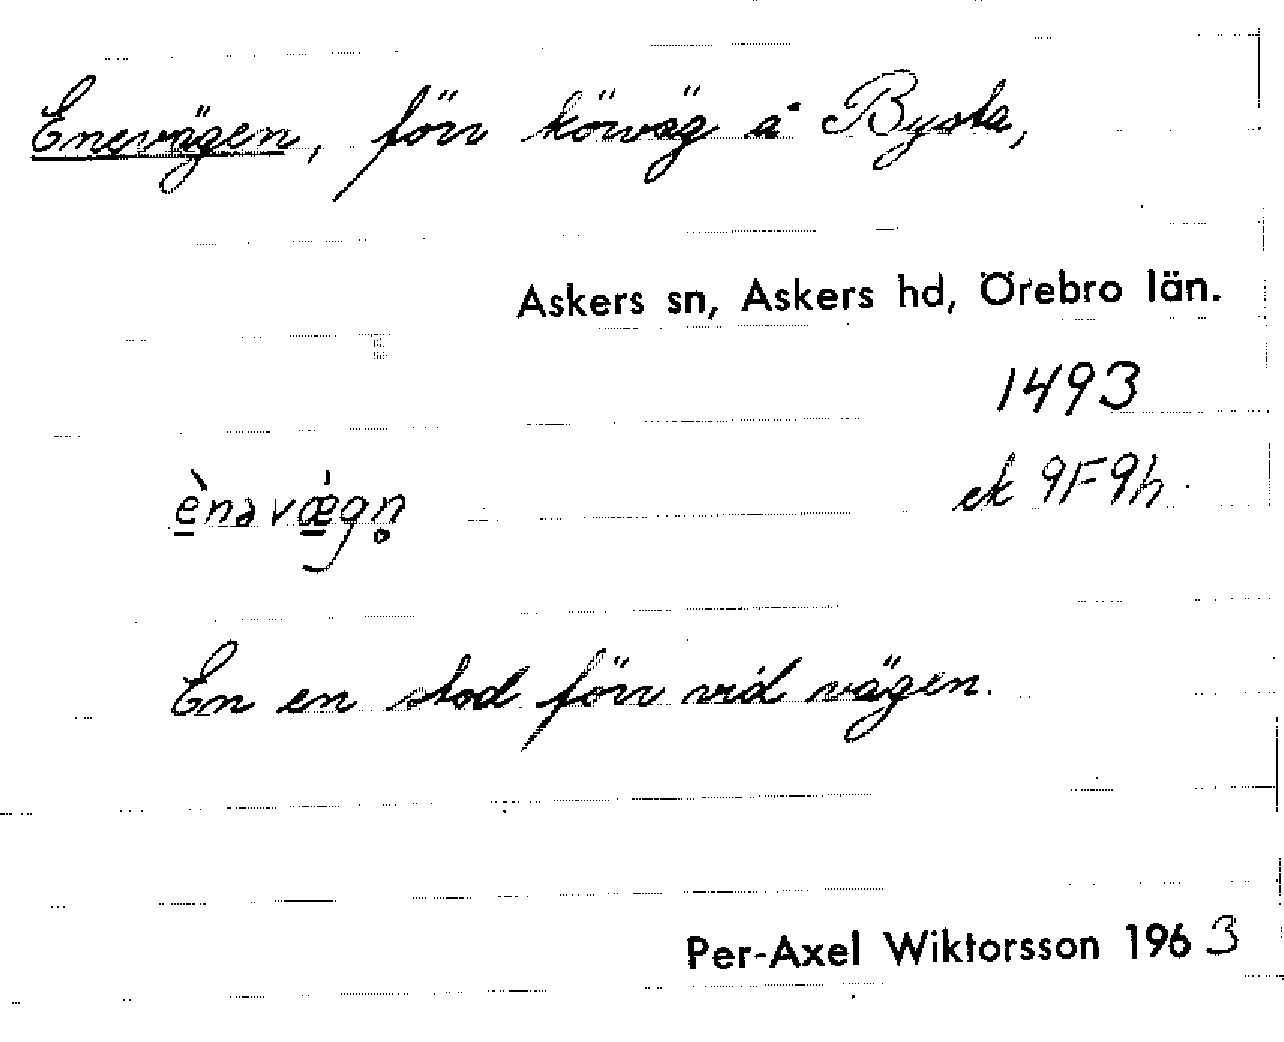 Enevägen, förr körväg å Bysta,
Askers sn, Askers hd, Örebro län.
1493
ènəvǽgn̥ ek 9F9h.
En en stod förr vid vägen.
Per-Axel Wiktorsson 1963